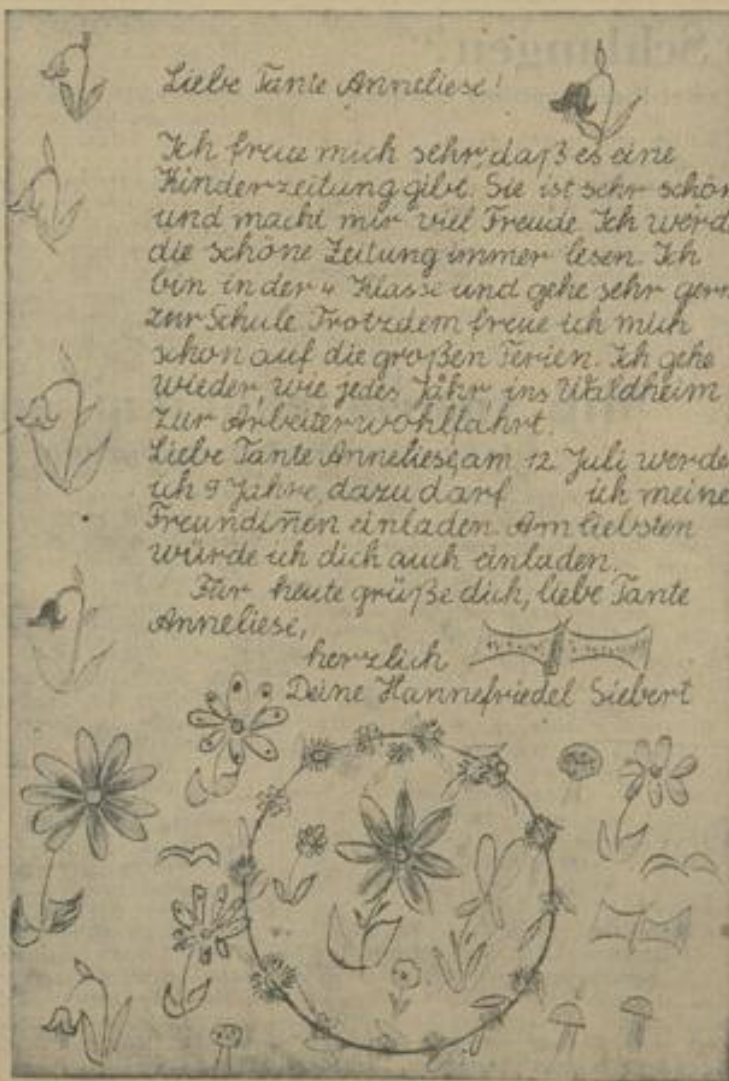 Liebe Tante Anneliese!
Ich freue mich sehr, daß es eine
Kinderzeitung gibt. Sie ist sehr schön
und macht mir viel Freude. Ich werde
die schöne Zeitung immer lesen. Ich
bin in der 4 Klasse und gehe sehr gern
zur Schule. Trotzdem freue ich mich
schon auf die großen Ferien. Ich gehe
wieder, wie jedes Jahr, ins Waldheim
zur Arbeiterwohlfahrt.
Liebe Tante Anneliese, am 12. Juli werde
ich 9 Jahre, dazu darf ich meine
Freundin̄en einladen. Am liebsten
würde ich dich auch einladen.
Für heute grüße dich, liebe Tante
Anneliese,
herzlich
Deine Hannefriedel Siebert